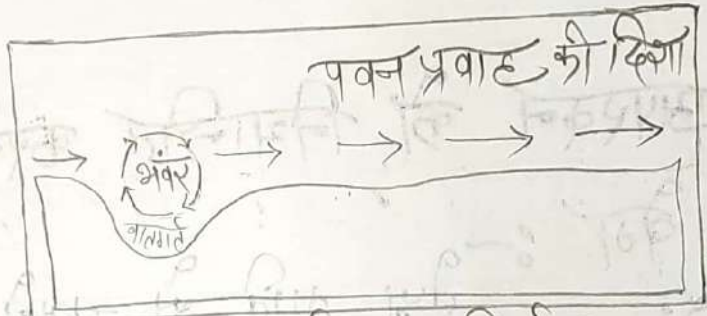 पवन प्रवाह की दिशा
भंवर
वातगर्त